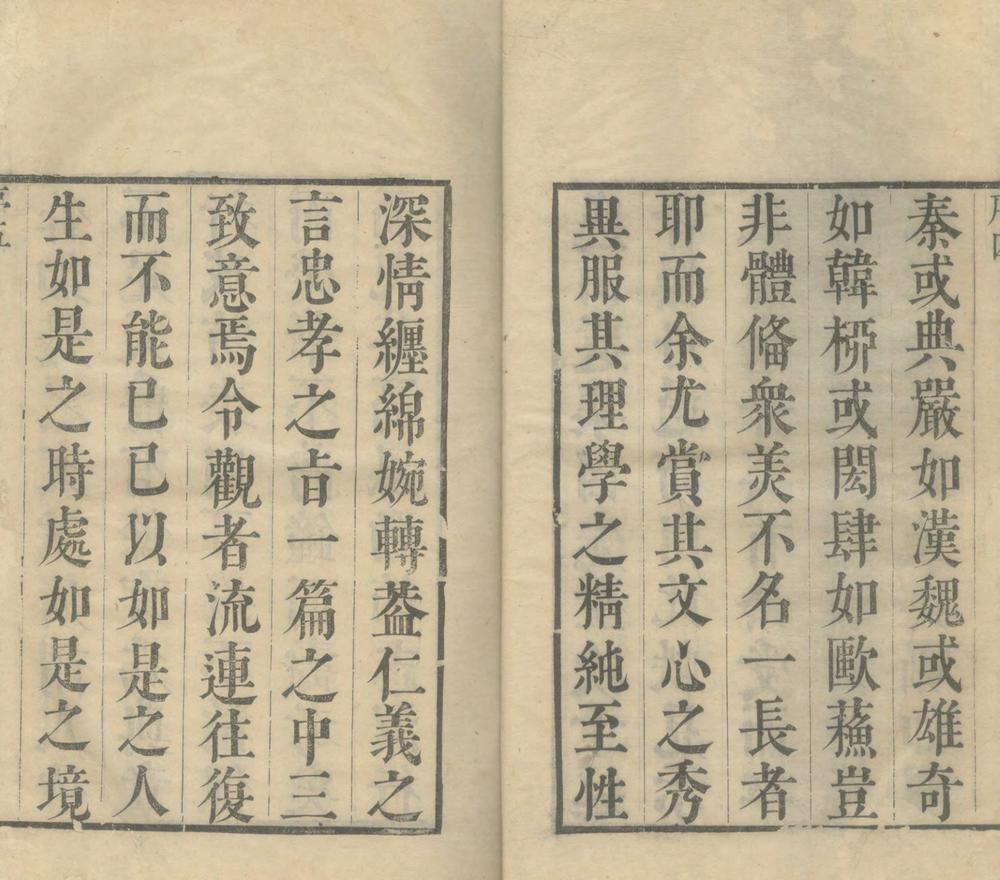 秦或典嚴如漢魏或雄奇
如韓桺或閎肆如歐蘓豈
非體俻衆美不名一長者
耶而余尤賞其文心之秀
異服其理學之精純至性
深情纏綿婉轉葢仁義之
言忠孝之㫖一篇之中三
致意焉令觀者流連往復
而不能已已以如是之人
生如是之時處如是之境